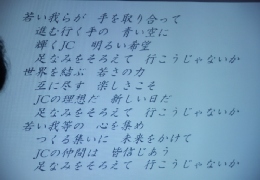 若い我らが 手を取り合って
進む行く手の 青い空に
輝くJC 明るい希望
足なみをそろえて 行こうじゃないか
世界を結ぶ 若さの力
互に尽す 楽しさこそ
JCの理想だ 新しい日だ
足なみをそろえて 行こうじゃないか
若い我等の 心を集め
つくる集いに 未来をかけて
JCの仲間は 皆信じあう
足なみをそろえて 行こうじゃないか